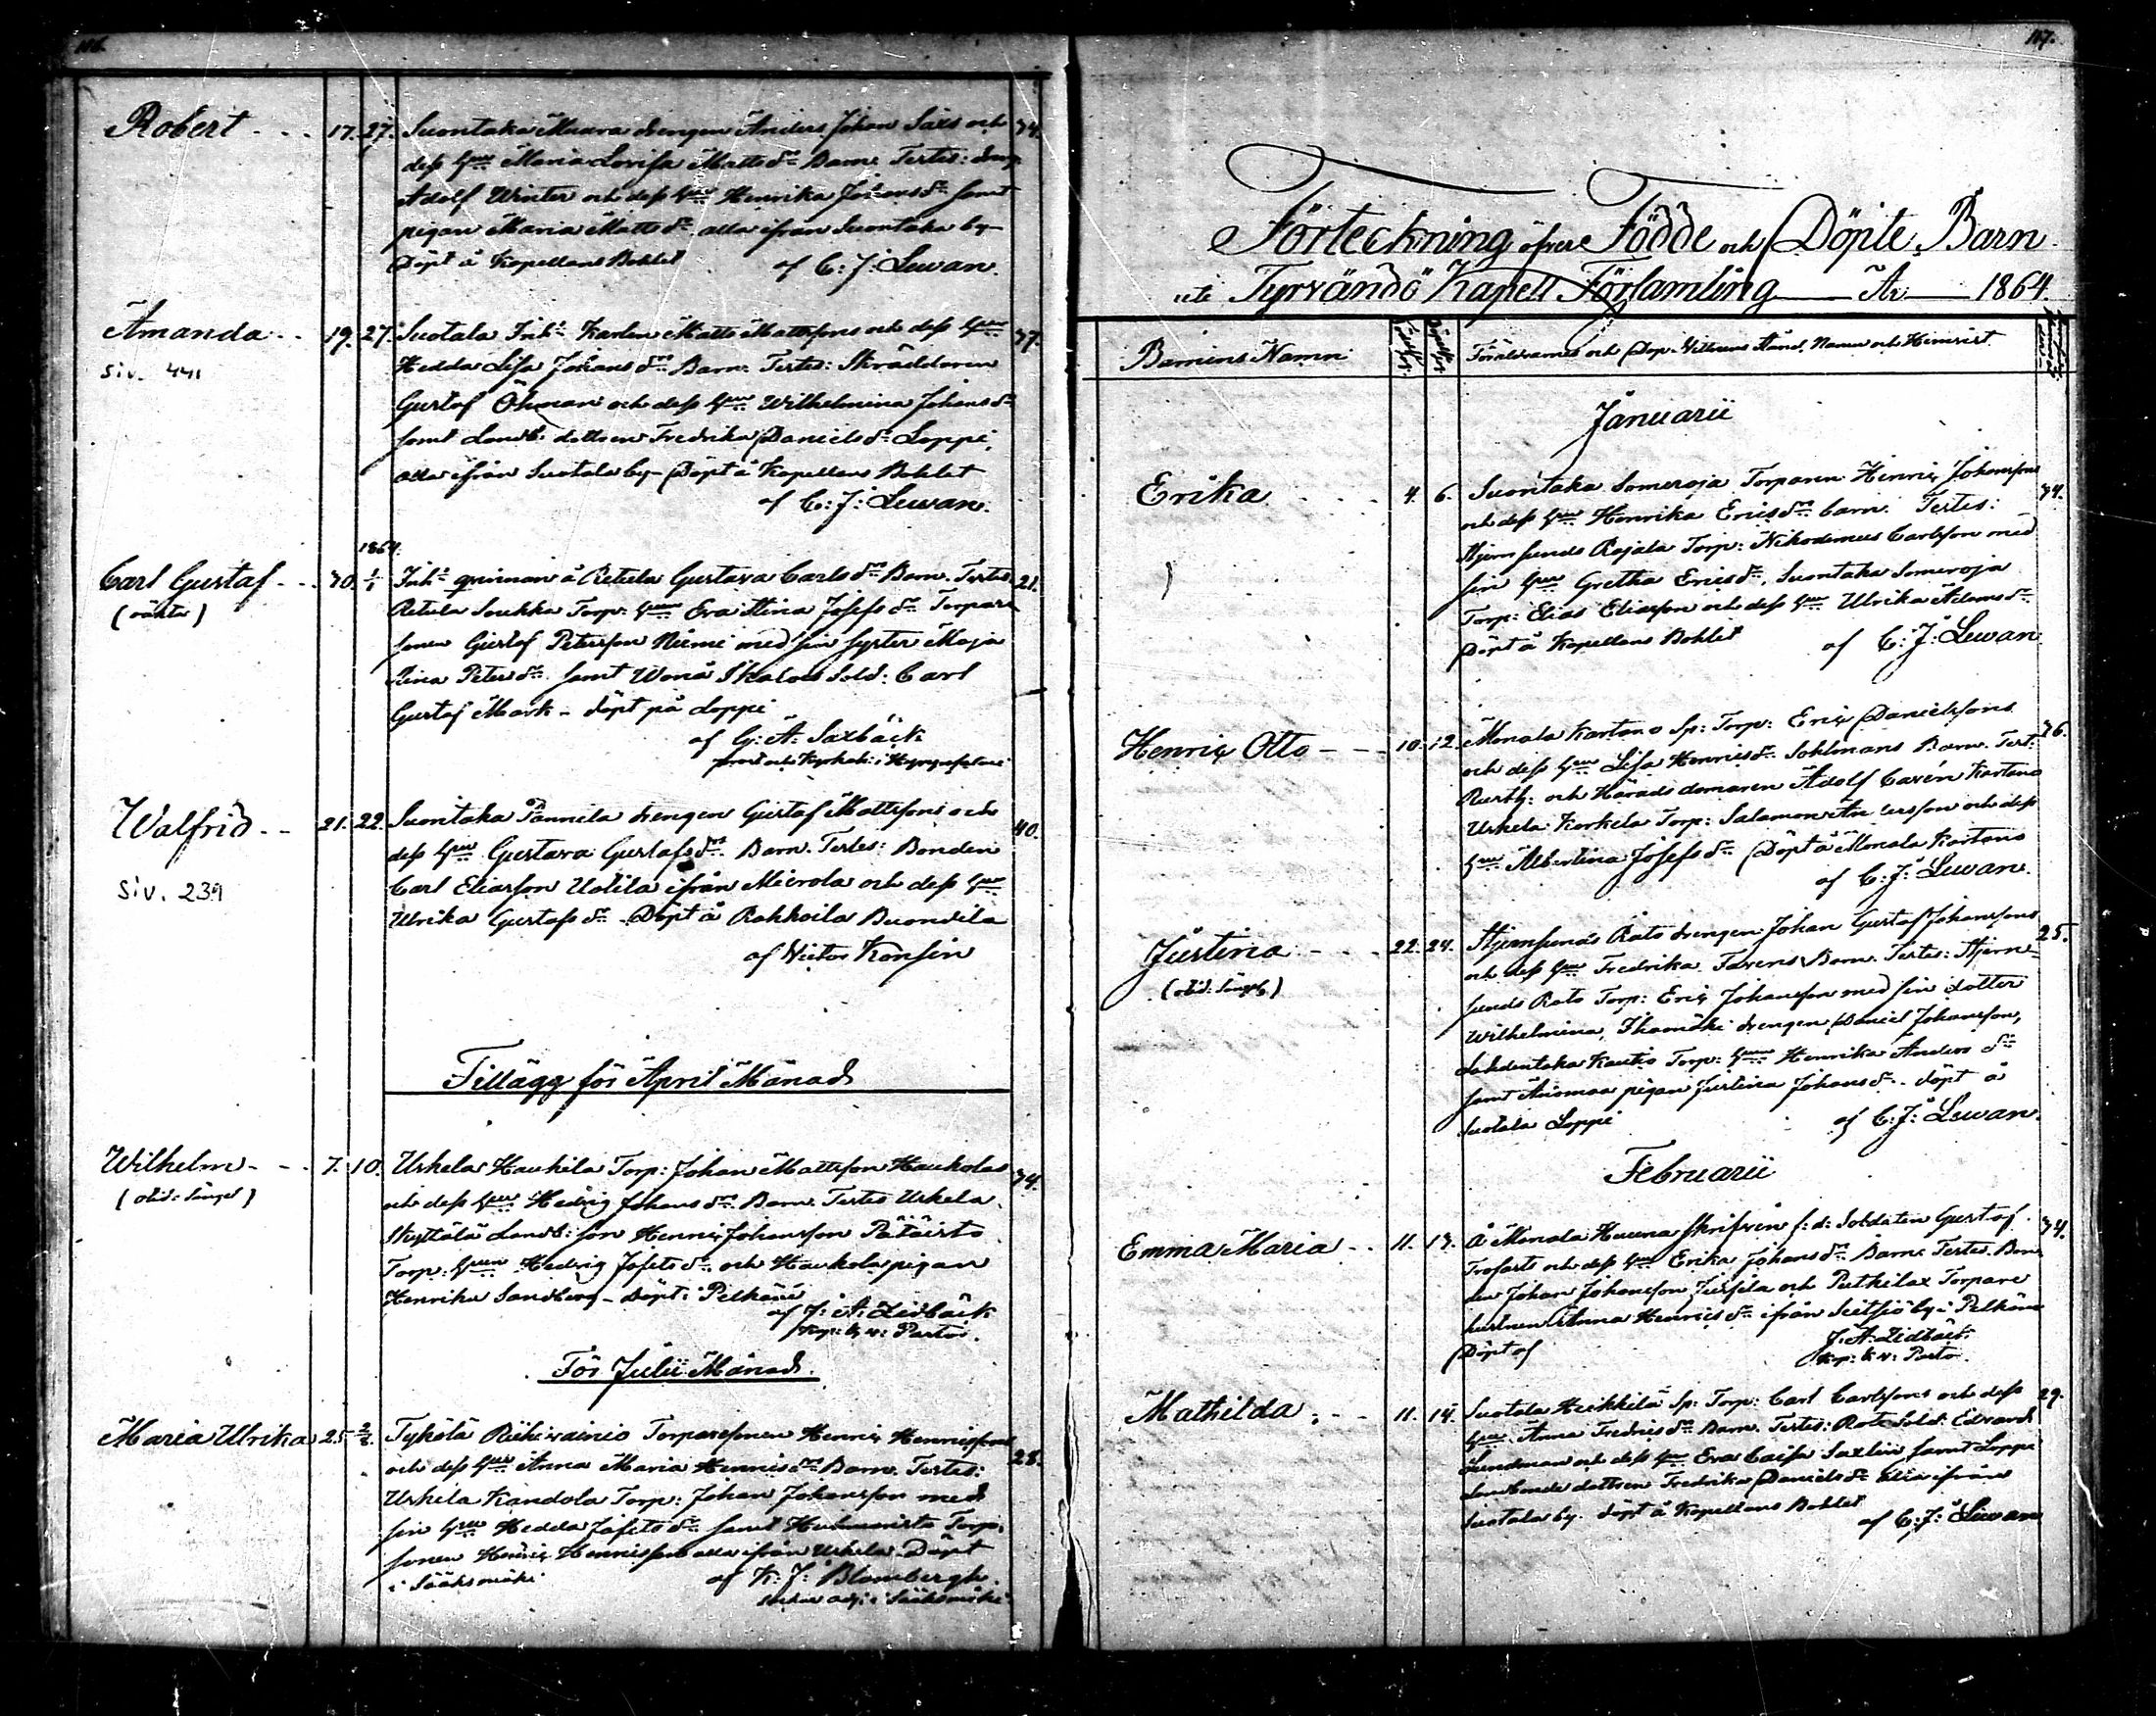 116.
Robert - - - 17. 27. Suontaka Muura drengen Anders Johan Saxs och 34.
dess hu Maria Lovisa Matts dr Barn. Testes: dreng.
Adolf Winter och dess hu Henrika Johans dr samt
pigan Maria Matts dr alla ifrån Suontaka by -
Döpt å Kapellans Bohlet af C: J: Lewan.
Amanda - - 19. 27. Suotala Inh: Karlen Matts Mattssons och dess hu 37.
siv. 441
Hedda Lisa Johans dr Barn. Testes: Skräddaren
Gustaf Öhman och dess hu Wilhelmina Johans dr
samt Landb: dottren Fredrika Daniels dr Loppi,
alla ifrån Suotala by - Döpt å Kapellans Bohlet
af C: J: Lewan.
1864.
Carl Gustaf - - - 30. 1/1 Inh: qvinnan å Retula Gustava Carls dr Barn. Testes: 21.
(oäkta)
Retula Soukka Torp: hu Eva Stina Josefs dr Torpare
sonen Gustaf Petersson Niemi med sin syster Maja
Stina Peters dr samt Sold: Carl
Gustaf Mark - döpt på Loppi
af G: A: Saxbäck
Walfrid - - 21. 22. Suontaka Pannila drengen Gustaf Mattssons och 40.
dess hu Gustava Gustafs dr Barn. Testes: Bonden
Carl Eliasson Uotila ifrån Mierola och dess hu
siv. 239
Ulrika Gustafs dr - Döpt å Rahkoila Buondila
af Victor Konsin
Tillägg för April Månad
Wilhelm - - - 7. 10. Urhela Haukila Torp: Johan Mattsson Haukolas 34.
(obid: Längel)
och dess hu Hedvig Johans dr Barn. Testes Urhela
Skyttälä Landb: son Henric Johansson Pätäistö
Torp: hun Hedvig Josefs dr och Haukola pigan
Henrika Sandberg - Döpt i Pelkäne
af J: A: Zidbäck
Kap: h v: Pastor.
För Julii Månad.
Maria Ulrika 25. 2/8. Tyhölä Riihivainio Torparesonen Henric Henricssons 28.
och dess hu Anna Maria Henrics dr Barn. Testes:
Urhela Kandola Torp: Johan Johansson med
sin hu Hedda Josefs dr samt Torp:
sonen Henric Henricsson alla ifrån Urhela - Döpt
i Sääksmäki af K: J: Blombergh.
adj: i Sääksmäki
117.
Förteckning öfver Födde och Döpte Barn
uti Tyrväntö Kapell Församling — År — 1864.
Barnens Namn
Föräldrarnes och Dop-Vittnens Stånd, Namn och Hemvist.
Januarii
Erika - - - 4. 6. Suontaka Someroja Torparen Henric Johanssons 34.
och dess hu Henrika Erics dr barn. Testes:
Stjernsunds Rajala Torp: Nikodemus Carlsson med
sin hu Gretha Erics dr, Suontaka Someroja
Torp: Elias Eliasson och dess hu Ulrika Adams dr
Döpt å Kapellans Bohlet af C: J: Lewan.
Henric Otto - - - 10. 12. Monala Kartano Sp: Torp: Eric Danielssons 36.
och dess hu Lisa Henrics dr Sohlmans Barn. Test:
Rusth: och Härads domaren Adolf Cavén Kartano
Urhela Korkela Torp: Salamon Andersson och dess
hu Albertina Josefs dr Döpt å Monala Kartano
af C: J: Lewan.
Justina - - - 22. 24. Stjernsunds Rato drengen Johan Gustaf Johanssons 25.
(obid: Längel.)
och dess hu Fredrika Taxens Barn. Testes: Stjern-
sunds Rato Torp: Eric Johansson med sin dotter
Wilhelmina, Ihamäki drengen Daniel Johansson,
Lahdentaka Kautio Torp: hu Henrika Anders dr
samt pigan Justina Johans dr - döpt å
Suotala Loppi af C: J: Lewan.
Februarii
Emma Maria - - 11. 13. Å Monala Huuna skrifven f: d: Soldaten Gustaf 34.
Trofasts och dess hu Erika Johans dr Barn. Testes. Bon-
den Johan Johansson Jussila och Puthila Torpare
hustrun Anna Henrics dr ifrån by i Pelkäne
Döpt af J. A. Zidbäck
Kap: h v: Pastor.
Mathilda - - 11. 14. Suotala Heikkilä Sp: Torp: Carl Carlssons och dess 29.
hu Anna Fredrics dr Barn. Testes: Rote Sold: Edvard
Lundman och dess hu Eva Caisa Saxlin samt Loppi
Landbonde dottren Fredrika Daniels dr alla ifrån
Suotala by. döpt å Kapellans Bohlet
af C: J: Lewan